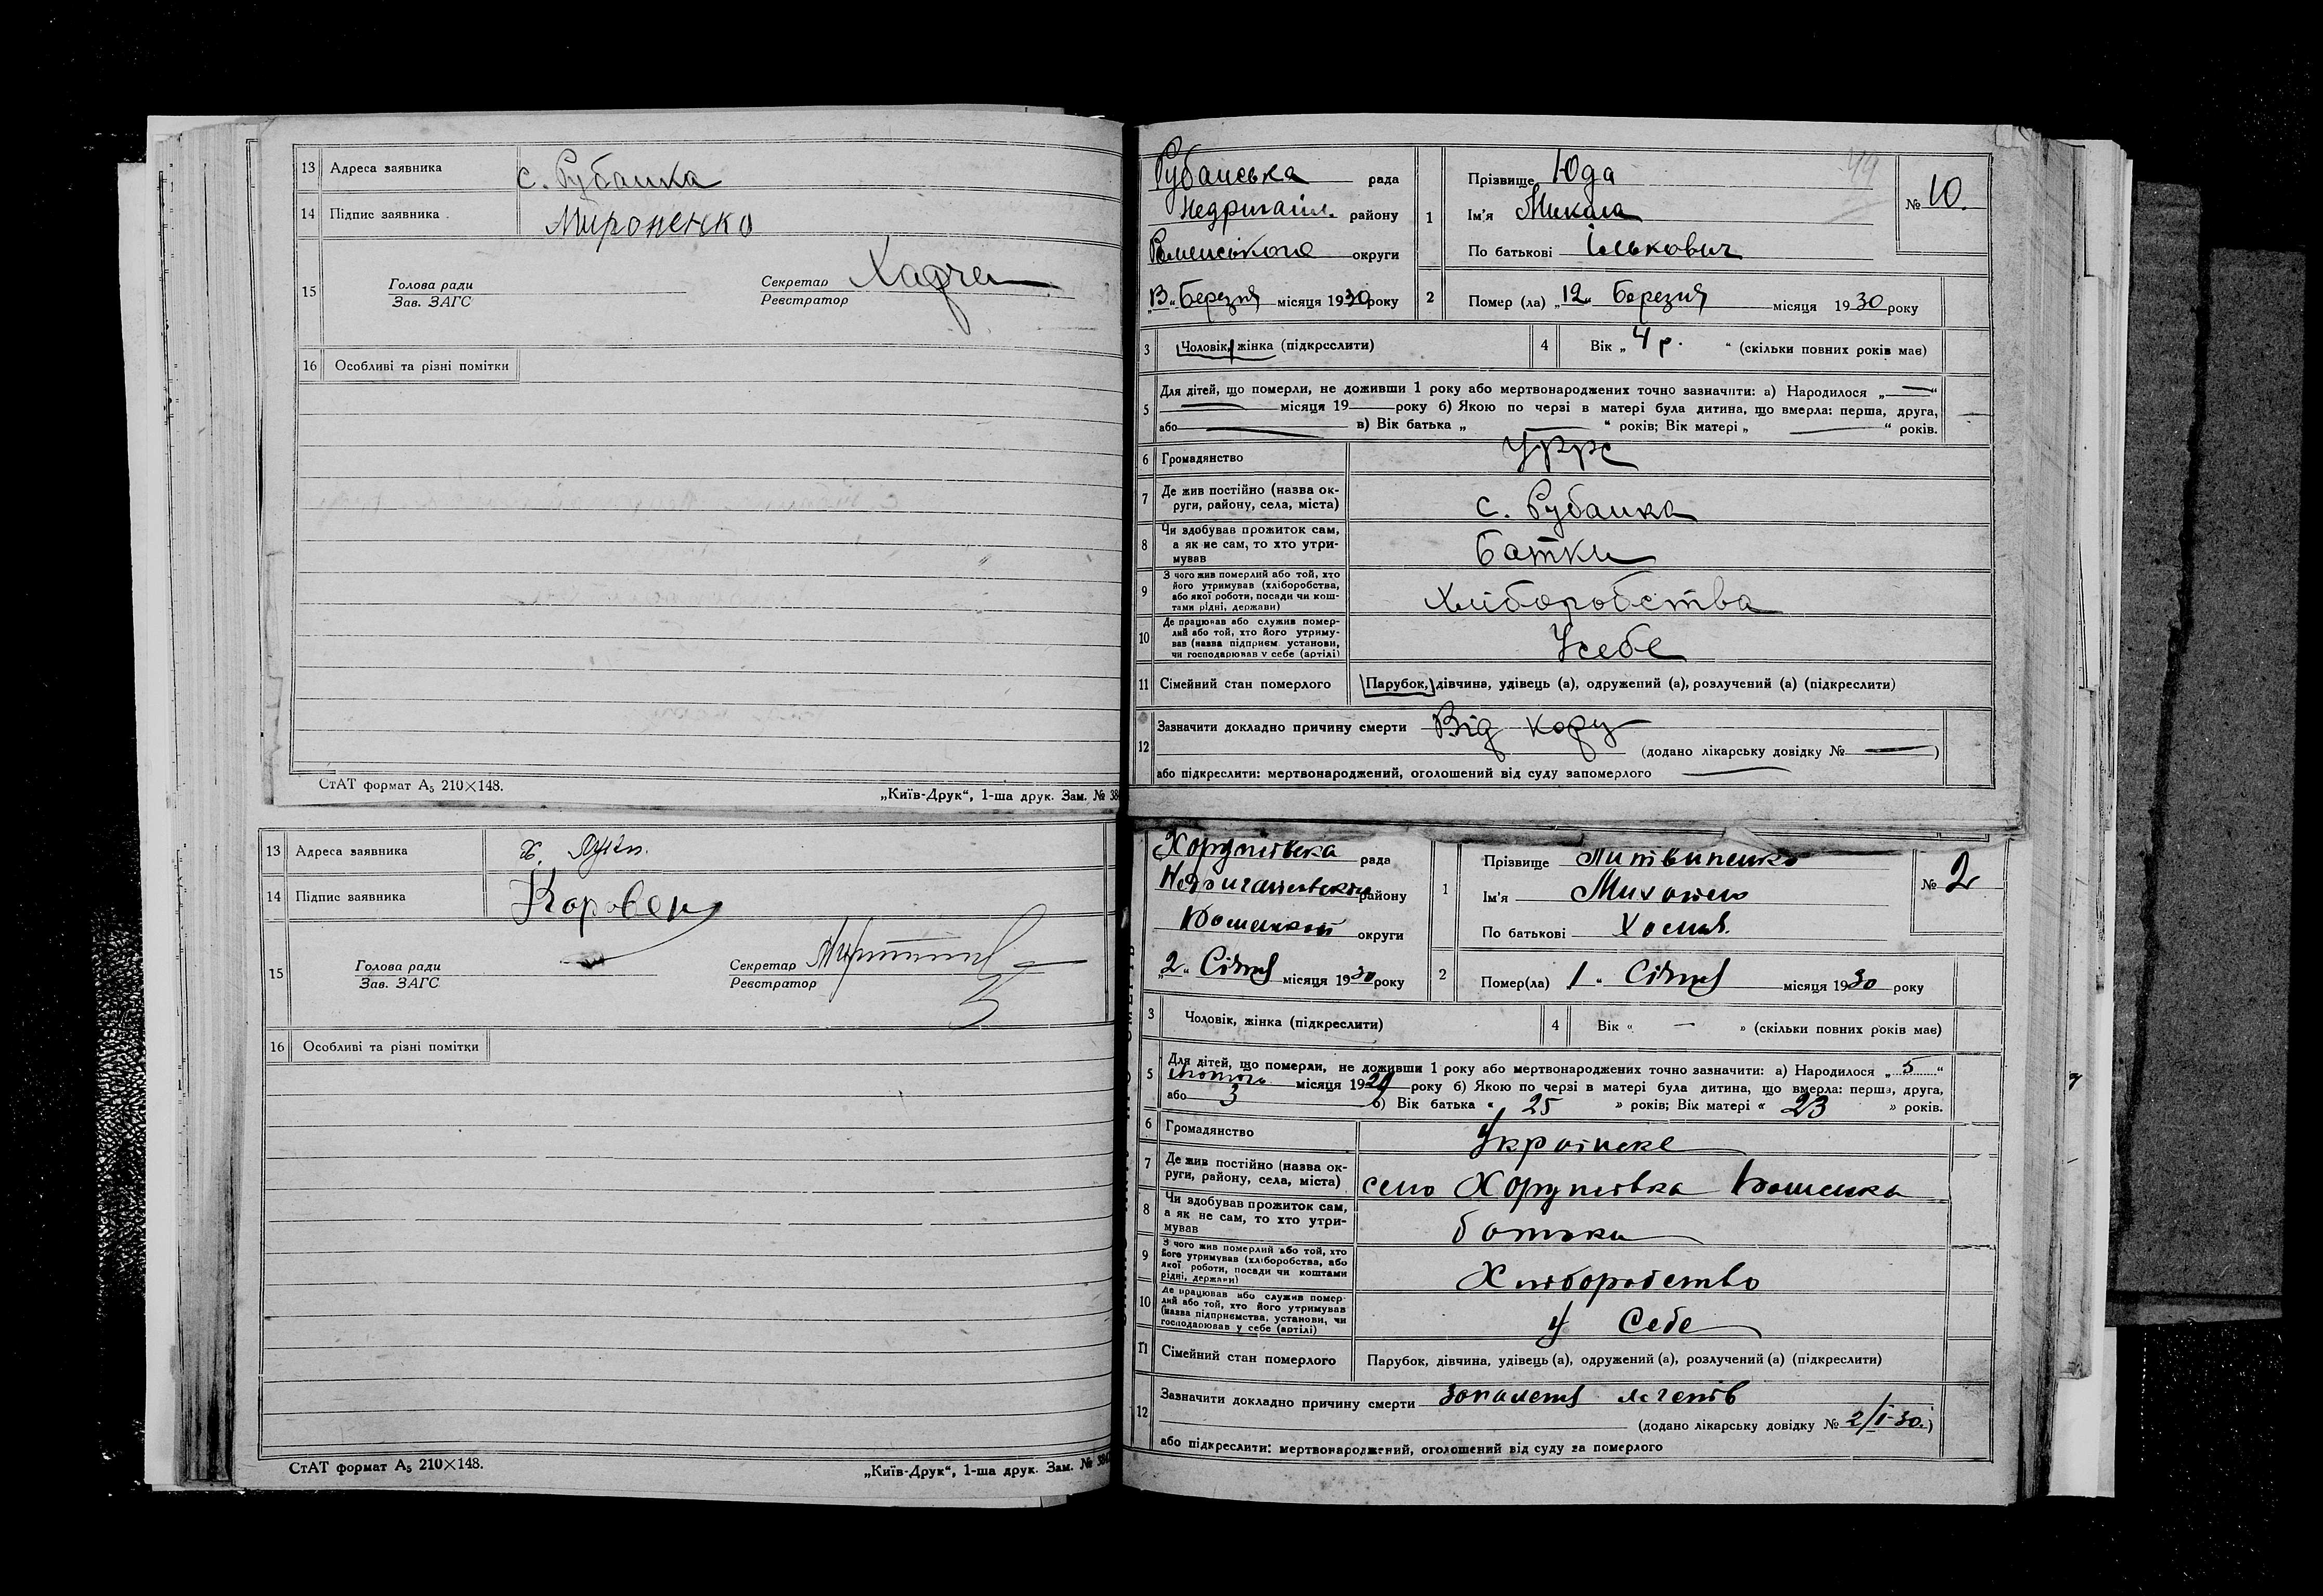 13 Адреса заявника с. Рубанка
14 Підпис заявника Мироненко
15 Голова ради
Зав. ЗАГС
Секретар
Реєстратор
16 Особливі та різні помітки
СтАТ формат А5 210×148.
„Київ-Друк“, 1-ша друк. Зам. № 38
13 Адреса заявника
14 Підпис заявника
15 Голова ради
Зав. ЗАГС
Секретар
Реєстратор
16 Особливі та різні помітки
СтАТ формат А5 210×148.
„Київ-Друк“, 1-ша друк. Зам. №
Рубанська рада
Недригайл. району
округи
„13“ Березня місяця 1930 року
44
1 Прізвище Юда
Ім'я Микола
По батькові Ількович
№ 10.
2 Помер (ла) „12“ Березня місяця 1930 року
3 Чоловік, жінка (підкреслити)
4 Вік „4 р.“ (скільки повних років має)
5 Для дітей, що померли, не доживши 1 року або мертвонароджених точно зазначити: а) Народилося „—“
— місяця 19 року б) Якою по черзі в матері була дитина, що вмерла: перша, друга,
або — в) Вік батька „—“ років; Вік матері „—“ років.
6 Громадянство УРРС
7 Де жив постійно (назва ок-
руги, району, села, міста) с. Рубанка
8 Чи здобував прожиток сам,
а як не сам, то хто утри-
мував Батьки
9 З чого жив померлий або той, хто
його утримував (хліборобства,
або якої роботи, посади чи кош-
тами рідні, держави) Хліборобства
10 Де працював або служив помер-
лий або той, хто його утриму-
вав (назва підприєм. установи,
чи господарював у себе (артілі) У себе
11 Сімейний стан померлого Парубок, дівчина, удівець (а), одружений (а), розлучений (а) (підкреслити)
12 Зазначити докладно причину смерти Від кору
(додано лікарську довідку № —)
або підкреслити: мертвонароджений, оголошений від суду запомерлого —
рада
району
округи
„2“ Січня місяця 1930 року
1 Прізвище Литвиненко
Ім'я Михайло
По батькові
№ 2
2 Помер(ла) 1 “ Січня місяця 1930 року
3 Чоловік, жінка (підкреслити)
4 Вік « — » (скільки повних років має)
5 Для дітей, що померли, не доживши 1 року або мертвонароджених точно зазначити: а) Народилося „5“
місяця 1929 року б) Якою по черзі в матері була дитина, що вмерла: перша, друга,
або 3 в) Вік батька « 25 » років; Вік матері « 23 » років.
6 Громадянство Українське
7 Де жив постійно (назва ок-
руги, району, села, міста) село
8 Чи здобував прожиток сам,
а як не сам, то хто утри-
мував батьки
9 З чого жив померлий або той, хто
його утримував (хліборобства, або
якої роботи, посади чи коштами
рідні, держави) Хліборобство
10 Де працював або служив помер-
лий або той, хто його утримував
(назва підприємства, установи, чи
господарював у себе (артілі) У Себе
11 Сімейний стан померлого Парубок, дівчина, удівець (а), одружений (а), розлучений (а) (підкреслити)
12 Зазначити докладно причину смерти запалення легенів
(додано лікарську довідку № 2/I-30.)
або підкреслити: мертвонароджений, оголошений від суду за померлого